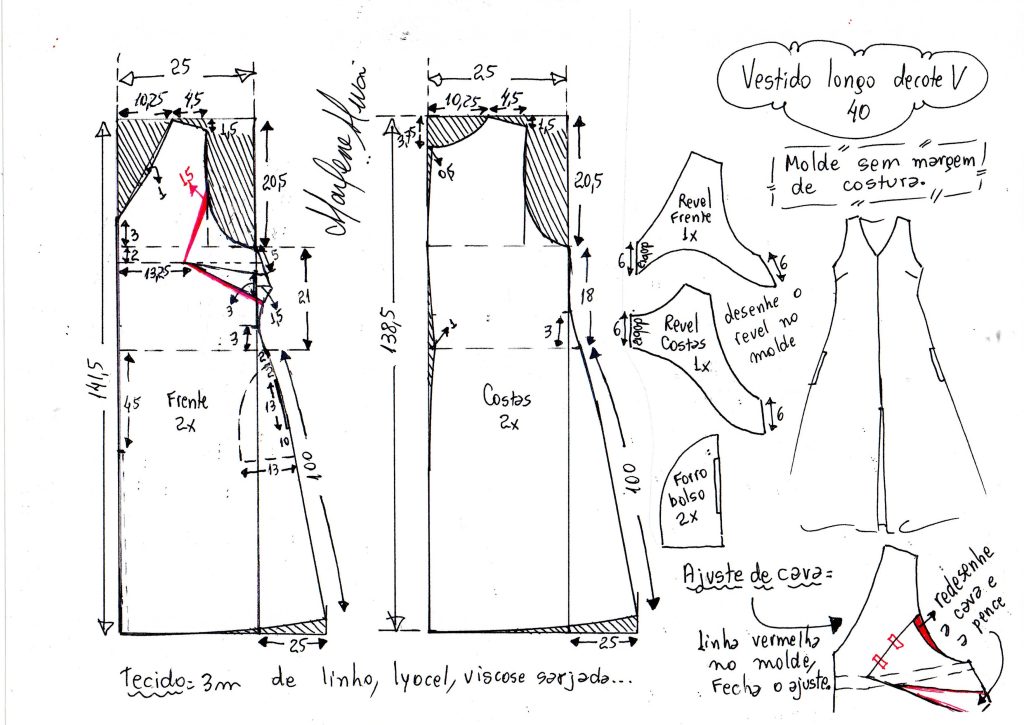 Vestido longo decote V
40
Molde sem margem
de costura.
Marlene Mukai
25
10,25
4,5
1,5
1
1,5
20,5
3
2
13,25
5
3
1,5
21
3
2
141,5
45
Frente
2x
13
10
13
100
25
25
10,25
4,5
3,5
1,5
0,5
20,5
138,5
18
3
1
Costas
2x
100
25
Revel
Frente
1x
6
dobra
6
Revel
Costas
1x
6
dobra
6
desenhe o
revel no
molde
Forro
bolso
2x
Ajuste de cava=
Linha vermelha
no molde,
Fecha o ajuste.
redesenhe
a cava e
a pence
Tecido= 3m de linho, lyocel, viscose sarjada...